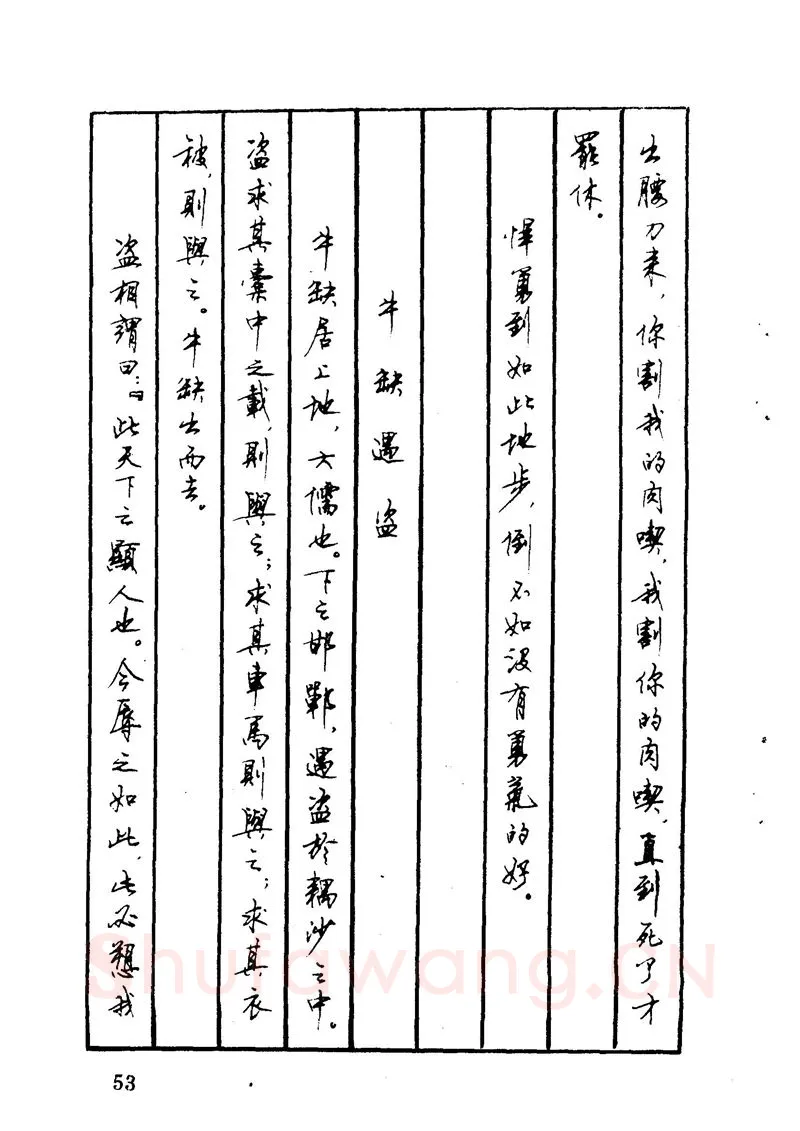 出腰刀来，你割我的肉喫，我割你的肉喫，直到死了才
罷休。
悍勇到如此地步，倒不如没有勇氣的好。
牛缺遇盗
牛缺居上地，大儒也。下之邯鄲，遇盗於耦沙之中。
盗求其橐中之載，則與之；求其車馬則與之；求其衣
被，則與之。牛缺出而去。
盗相謂曰：“此天下之顯人也。今辱之如此，此必愬我
Shufawang.CN
53